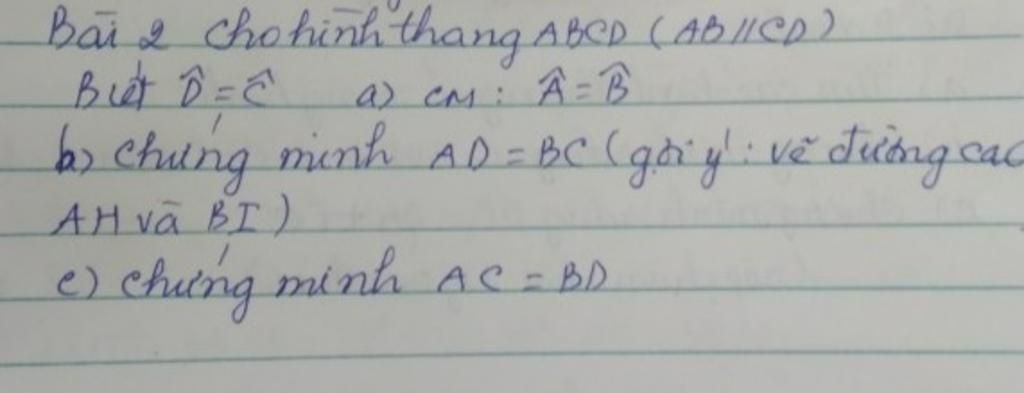 Bài 2 Cho hình thang ABCD (AB//CD)
Biết D̂ = Ĉ a) CM : Â = B̂
b) Chứng minh AD = BC (gợi ý : vẽ đường cao
AH và BI)
c) Chứng minh AC = BD